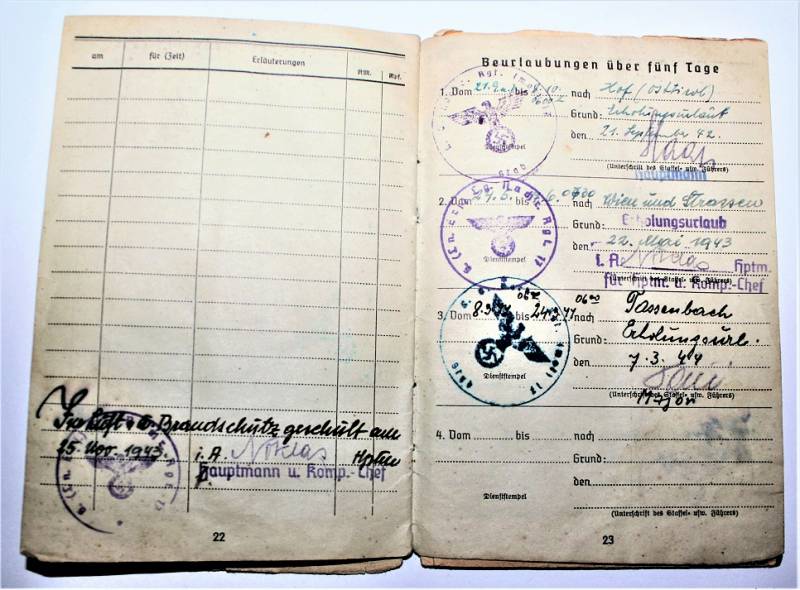 am für (Zeit) Erläuterungen Nr.
i. u. Brandschutz geschult am
25. Nov. 1943. i. A. Niklas Hptm
Hauptmann u. Komp.-Chef
22
Beurlaubungen über fünf Tage
1. Vom 21.9. bis 08.10. nach Hof (Osttirol)
0600
Grund: Erholungsurlaub
den 21. September 42.
Dienststempel
(Unterschrift des Staffel- usw. Führers)
Hauptmann
2. Vom bis nach Wien und Strassen
Ln. Nachr. Rgt. 17
Grund: Erholungsurlaub
den 22. Mai 1943
Dienststempel
i. A. Niklas Hptm.
(Unterschrift des Staffel- usw. Führers)
für Hptm. u. Komp.-Chef
3. Vom 8.3.44 06 bis 24.3.44 06 00 nach Tassenbach
Grund: Erholungsurl.
den 7.3.44
Dienststempel
(Unterschrift des Staffel- usw. Führers)
Major
4. Vom bis nach
Grund:
den
Dienststempel
(Unterschrift des Staffel- usw. Führers)
23